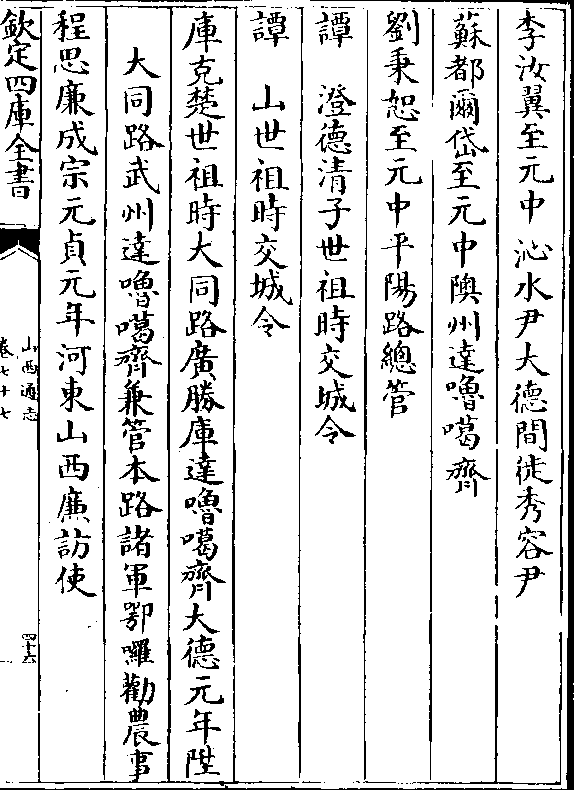 李汝翼至元中沁水尹大德間徙秀容尹
蘇都爾岱至元中隩州達嚕噶齊
劉秉恕至元中平陽路總管
譚　澄德清子世祖時交城令
譚　山世祖時交城令
庫克楚世祖時大同路廣勝庫達嚕噶齊大德元年陞
大同路武州達嚕噶齊兼管本路諸軍鄂囉勸農事
程思廉成宗元貞元年河東山西廉訪使
欽定四庫全書
山西通志
卷七十七
四十六